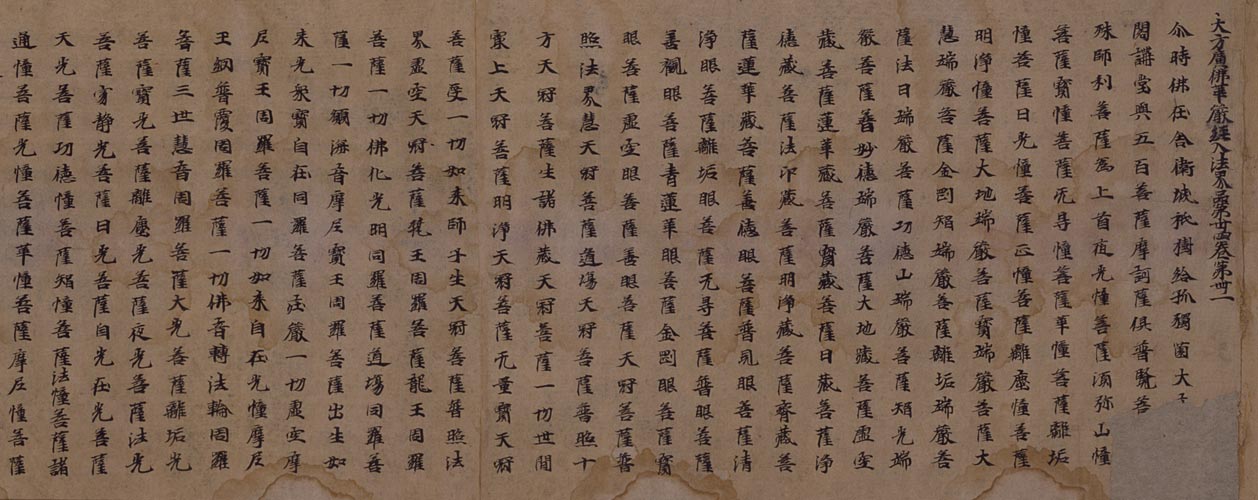 大方廣佛華嚴經入法界品第卅四卷第卌一
尒時佛在舍衛城祇樹給孤獨薗大
閣講堂與五百菩薩摩訶薩俱普賢菩
殊師利菩薩為上首夜光憧菩薩須弥山憧
菩薩寶憧菩薩无㝵憧菩薩華憧菩薩離垢
憧菩薩日光憧菩薩正憧菩薩離塵憧菩薩
明淨憧菩薩大地端嚴菩薩寶端嚴菩薩大
慧端嚴菩薩金剛智端嚴菩薩離垢端嚴菩
薩法日端嚴菩薩功德山端嚴菩薩智光端
嚴菩薩普妙德端嚴菩薩大地藏菩薩虛空
藏菩薩蓮華藏菩薩寶藏菩薩日藏菩薩淨
德藏菩薩法印藏菩薩明淨藏菩薩齊藏菩
薩蓮華藏菩薩善德眼菩薩普見眼菩薩清
淨眼菩薩離垢眼菩薩无㝵菩薩普眼菩薩
善觀眼菩薩青蓮華眼菩薩金剛眼菩薩寶
眼菩薩虛空眼菩薩善眼菩薩天冠菩薩普
照法界慧天冠菩薩道場天冠菩薩普照十
方天冠菩薩生諸佛藏天冠菩薩一切世間
冣上天冠菩薩明淨天冠菩薩无量寶天冠
菩薩受一切如来師子坐天冠菩薩普照法
界虛空天冠菩薩梵王周羅菩薩龍王周羅
菩薩一切佛化光明周羅菩薩道場周羅菩
薩一切願海音摩尼寶王周羅菩薩出生如
来光衆寶自在周羅菩薩莊嚴一切虛空摩
尼寶王周羅菩薩一切如来自在光憧摩尼
王網普覆周羅菩薩一切佛音轉法輪周羅
菩薩三世慧音周羅菩薩大光菩薩離垢光
菩薩寶光菩薩離塵光菩薩夜光菩薩法光
菩薩寂静光菩薩日光菩薩自光在光菩薩
天光菩薩功德憧菩薩智憧菩薩法憧菩薩諸
通憧菩薩光憧菩薩華憧菩薩摩尼憧菩薩